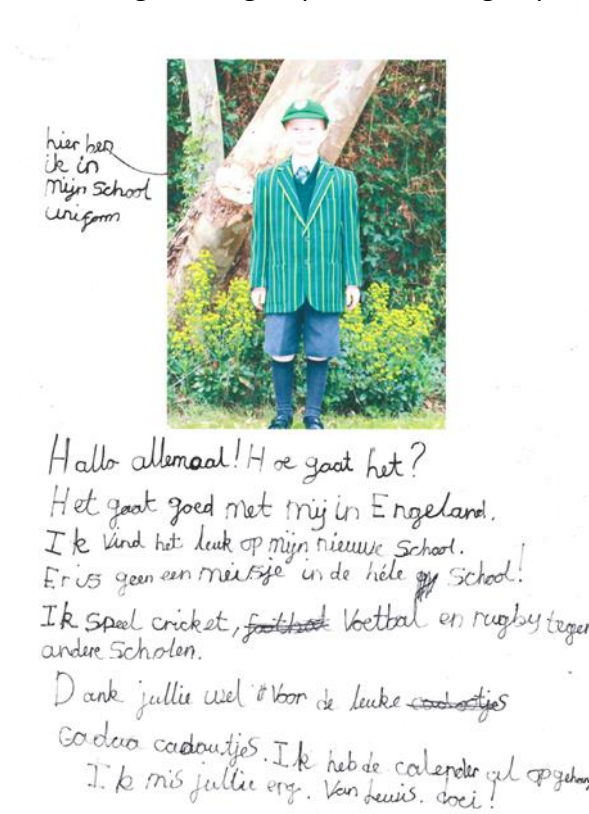 hier ben
ik in
mijn school
uniform
Hallo allemaal! Hoe gaat het?
Het gaat goed met mij in Engeland.
Ik vind het leuk op mijn nieuwe School.
Er is geen een meisje in de héle school!
Ik speel cricket, Voetbal en rugby tegen
andere Scholen.
Dank jullie wel voor de leuke
cadoutjes. Ik heb de calender al opgehang
Ik mis jullie erg. Van Louis. doei!